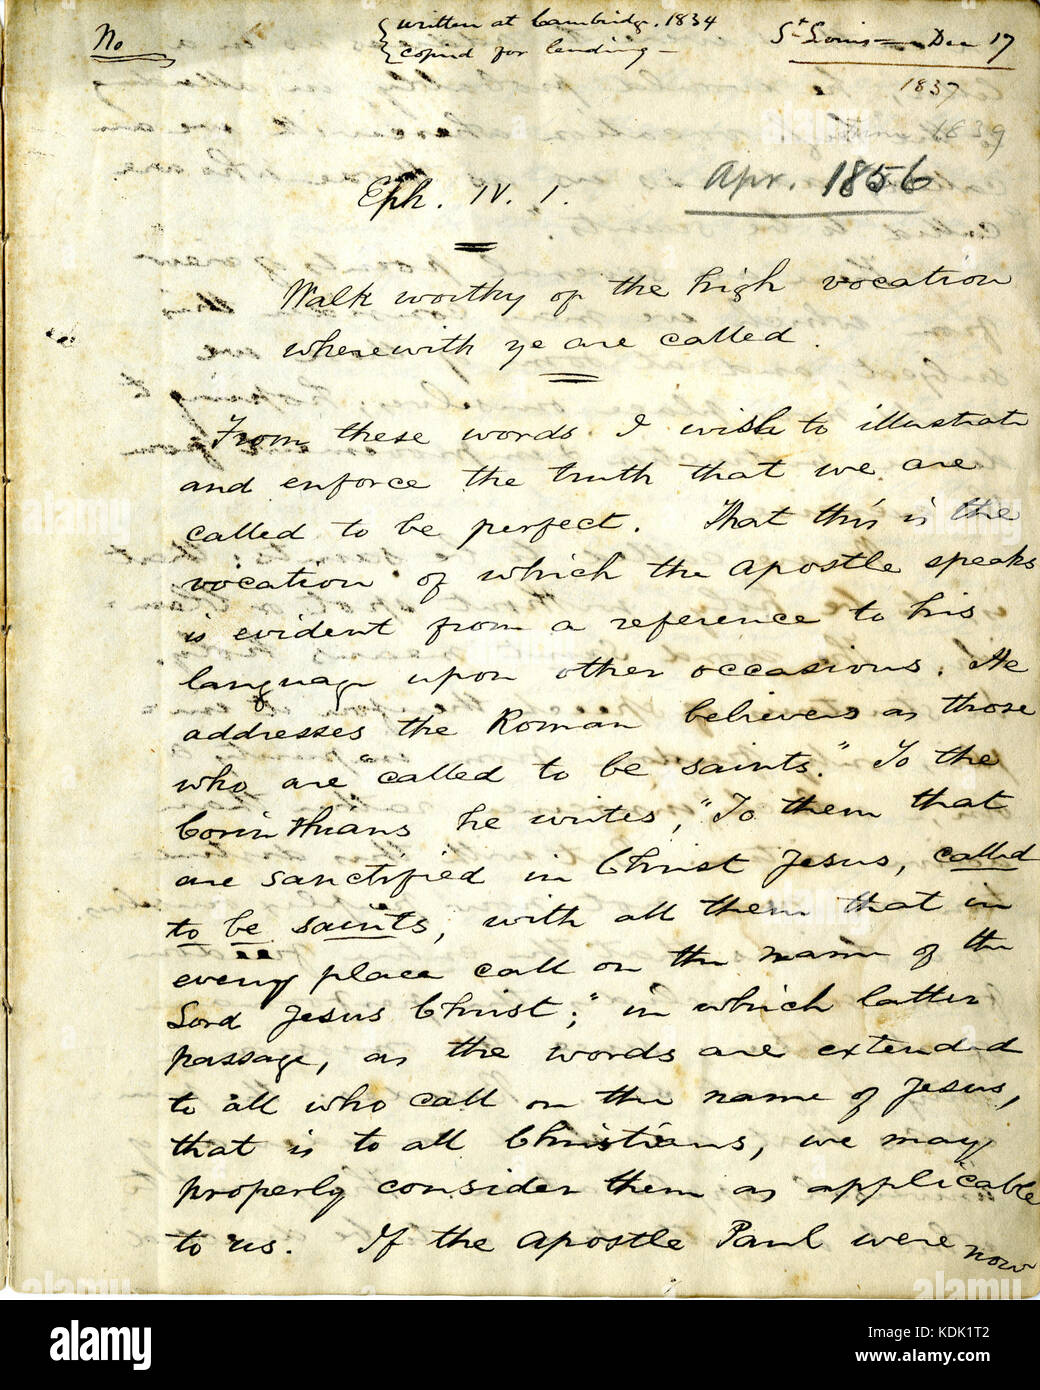 No
written at Cambridge. 1834
copied for lending —
St Louis — Dec 17
1837
June 1839
Apr. 1856
Eph. IV. 1.
Walk worthy of the high vocation
wherewith ye are called.
From these words I wish to illustrate
and enforce the truth that we are
called to be perfect. That this is the
vocation of which the Apostle speaks
is evident from a reference to his
language upon other occasions. He
addresses the Roman believers as those
who are "called to be saints." To the
Corinthians he writes, "To them that
are sanctified in Christ Jesus, called
to be saints, with all them that in
every place call on the name of the
Lord Jesus Christ;" in which latter
passage, as the words are extended
to all who call on the name of Jesus,
that is to all Christians, we may
properly consider them as applicable
to us. If the Apostle Paul were now
alamy
Image ID: KDK1T2
www.alamy.com